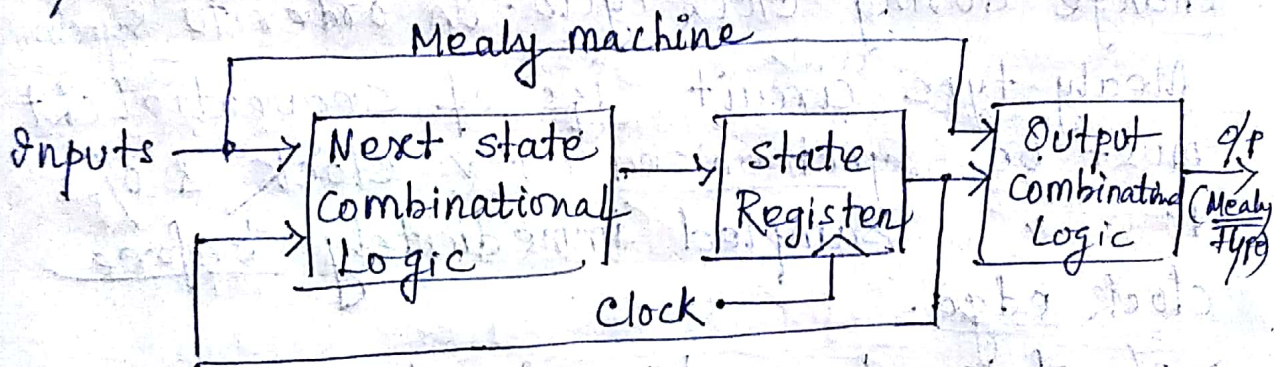 Mealy machine
Inputs
Next state
Combinational
Logic
state
Register
Clock
Output
Combinational
Logic
O/P
(Mealy
Type)